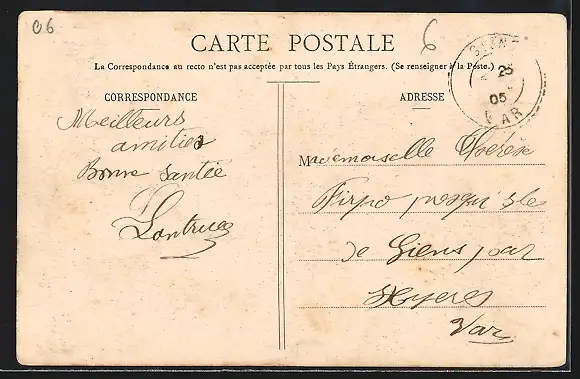 06
6
CARTE POSTALE
La Correspondance au recto n'est pas acceptée par tous les Pays Étrangers. (Se renseigner à la Poste.)
25
05
VAR
CORRESPONDANCE
ADRESSE
Meilleurs
amitiés
Bonne santée
Mademoiselle Thérèse
Firpo presqu'île
de Giens par
Hyeres
Var